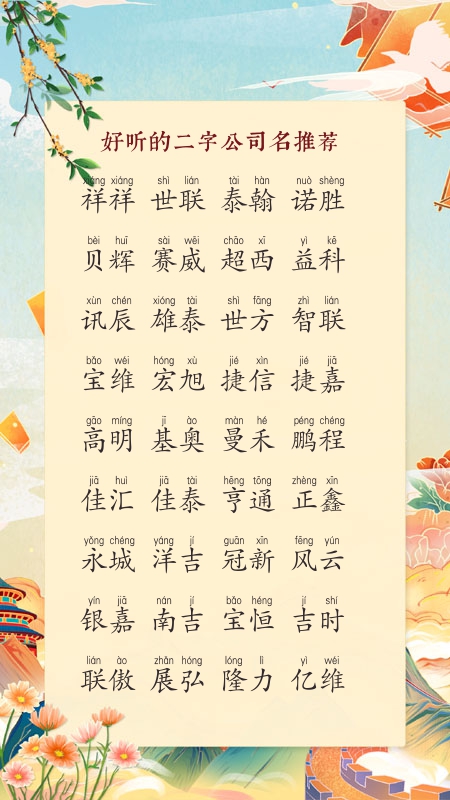 好听的二字公司名推荐
xiáng xiáng shì lián tài hàn nuò shèng
祥祥 世联 泰翰 诺胜
bèi huī sài wēi chāo xī yì kē
贝辉 赛威 超西 益科
xùn chén xióng tài shì fāng zhì lián
讯辰 雄泰 世方 智联
bǎo wéi hóng xù jié xìn jié jiā
宝维 宏旭 捷信 捷嘉
gāo míng jī ào màn hé péng chéng
高明 基奥 曼禾 鹏程
jiā huì jiā tài hēng tōng zhèng xīn
佳汇 佳泰 亨通 正鑫
yǒng chéng yáng jí guān xīn fēng yún
永城 洋吉 冠新 风云
yín jiā nán jí bǎo héng jí shí
银嘉 南吉 宝恒 吉时
lián ào zhǎn hóng lóng lì yì wéi
联傲 展弘 隆力 亿维